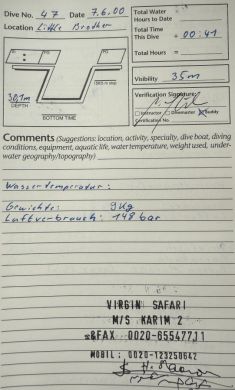 Dive No. 47 Date 7.6.00
Location Little Brother
Total Water
Hours to Date
Total Time
This Dive + 00:41
Total Hours =
PG
PG
30,1m
DEPTH
BOTTOM TIME
Visibility 35m
Verification Signature:
Instructor Divemaster Buddy
Certification No.
Comments (Suggestions: location, activity, specialty, dive boat, diving
conditions, equipment, aquatic life, water temperature, weight used, under-
water geography/topography)
Wassertemperatur:
Gewichte: 9Kg
Luftverbrauch: 148 bar
VIRGIN SAFARI
M/S KARIM 2
&FAX 0020-65547711
MOBIL: 0020-123250642